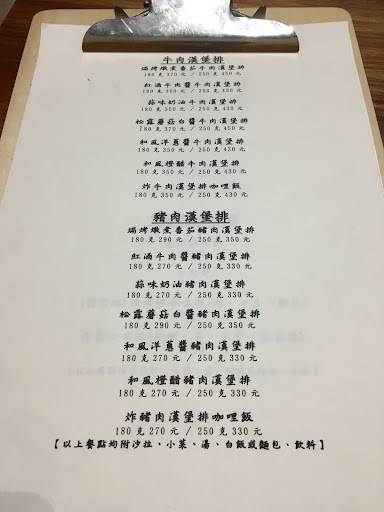 牛肉漢堡排
焗烤燉煮番茄牛肉漢堡排
180克370元 / 250克450元
紅酒牛肉醬牛肉漢堡排
180克350元 / 250克430元
蒜味奶油牛肉漢堡排
180克350元 / 250克430元
松露蘑菇白醬牛肉漢堡排
180克370元 / 250克450元
和風洋蔥醬牛肉漢堡排
180克350元 / 250克430元
和風橙醋牛肉漢堡排
180克350元 / 250克430元
炸牛肉漢堡排咖哩飯
180克350元 / 250克430元
豬肉漢堡排
焗烤燉煮番茄豬肉漢堡排
180克290元 / 250克350元
紅酒牛肉醬豬肉漢堡排
180克270元 / 250克330元
蒜味奶油豬肉漢堡排
180克270元 / 250克330元
松露蘑菇白醬豬肉漢堡排
180克290元 / 250克350元
和風洋蔥醬豬肉漢堡排
180克270元 / 250克330元
和風橙醋豬肉漢堡排
180克270元 / 250克330元
炸豬肉漢堡排咖哩飯
180克270元 / 250克330元
【以上餐點均附沙拉、小菜、湯、白飯或麵包、飲料】